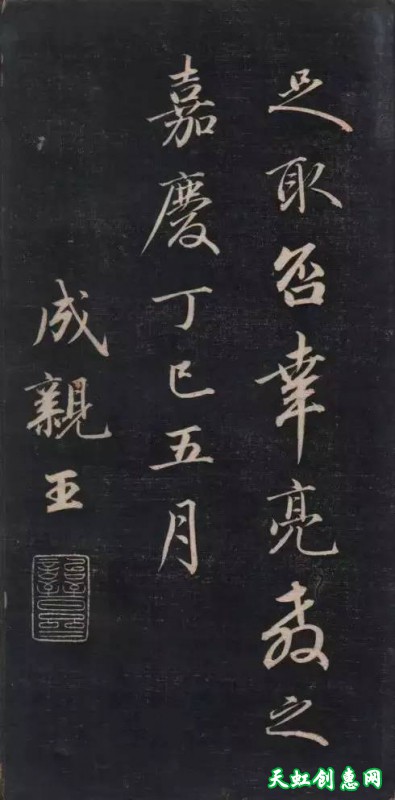 足取否幸亮教之
嘉慶丁巳五月
成親王
天虹创惠网